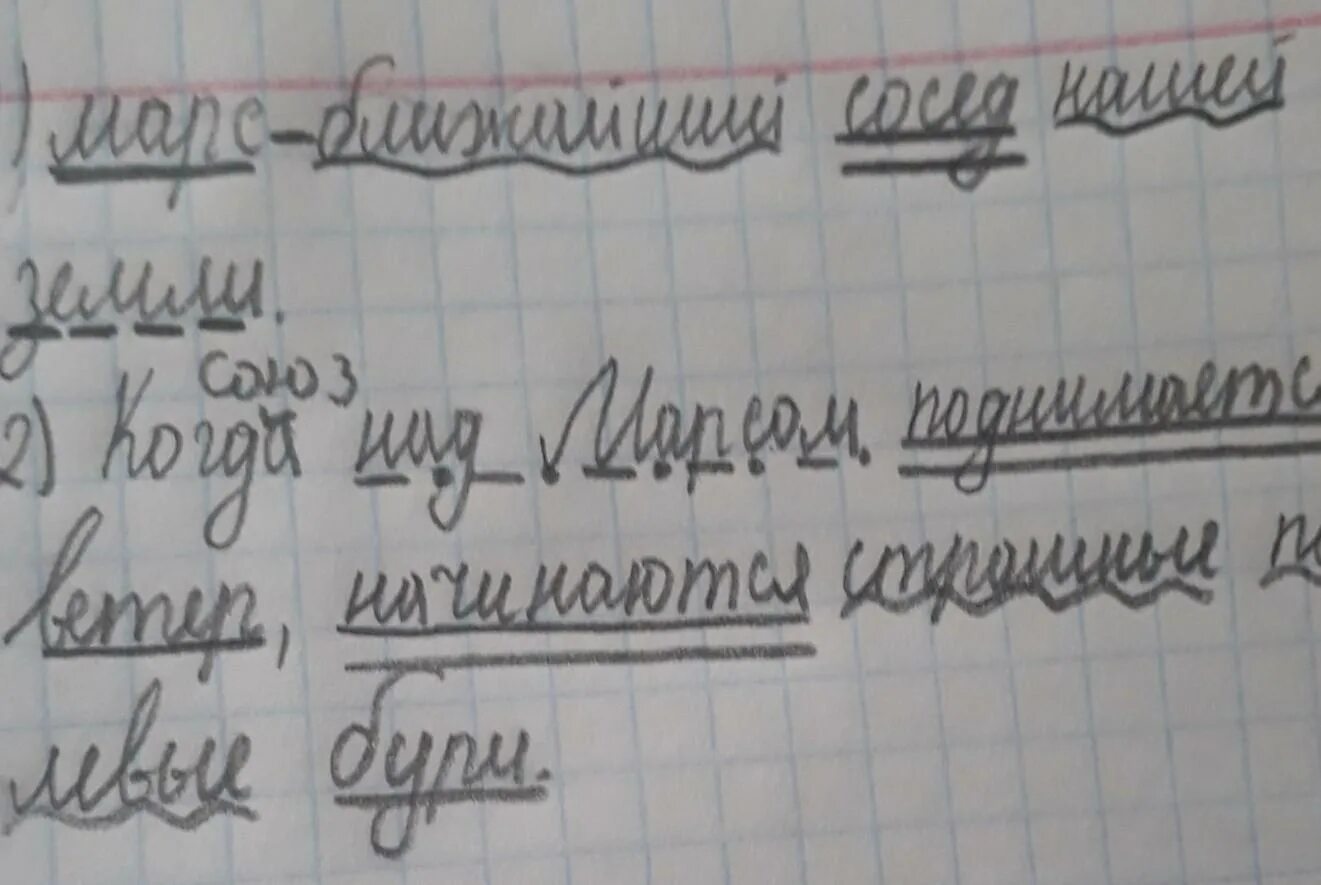 1) марс - ближайший сосед нашей
земли.
союз
2) Когда над Марсом поднимаетс
ветер, начинаются страшные п
левые бури.